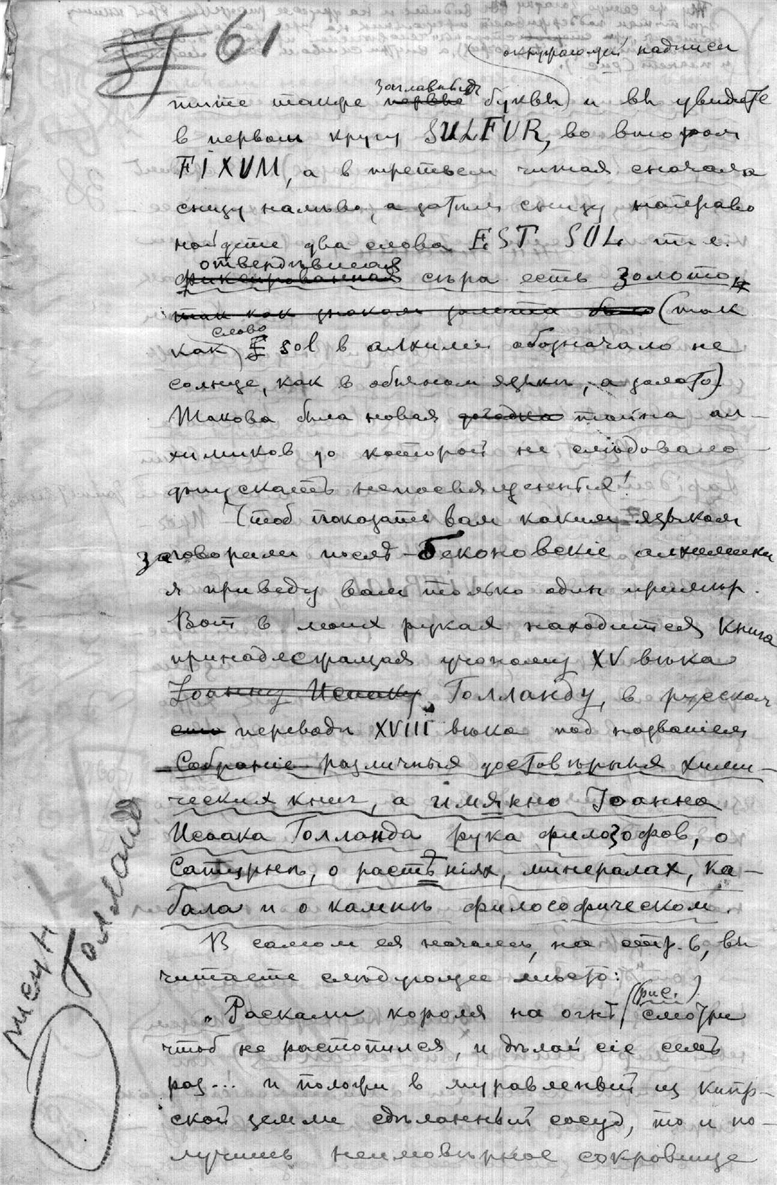 61
окружающей надписи
заглавныя
пите также первые буквы и вы увидите
в первом кругу SULFUR, во втором
FIXUM, а в третьем читая сначала
снизу налево, а затем снизу направо
найдете два слова EST SOL т. е.
отвердѣвшая
фиксированная сѣра есть золото,
так как знаком золота было (так
слово
как sol в алхимии обозначало не
солнце, как в обычном языке, а золото)
Такова была новая догадка тайна ал-
химиков до которой не слѣдовало
допускать непосвященныя!
Чтоб показать вам каким языком
заговорили послѣ-Беконовскіе алхимики
я приведу вам только один примѣр.
Вот в моих руках находится книга
принадлежащая ученому XV вѣка
Іоанну Исааку Голланду, в русском
переводѣ XVIII вѣка под названіем
Собрание различных достовѣрных хими-
ческих книг, а имянно Іоанна
Исаака Голланда рука филозофов, о
Сатурнѣ, о растѣніях, минералах, ка-
бала и о камнѣ философическом.
В самом ея началѣ, на стр. 6, вы
читаете слѣдующее мѣсто:
(рис. )
„Раскали короля на огнѣ смотри
чтоб не растопился, и дѣлай сіе семь
раз... и положи в муравленый из кипр-
ской земли сдѣланный сосуд, то и по-
лучишь неимовѣрное сокровище
рисун
Голланда